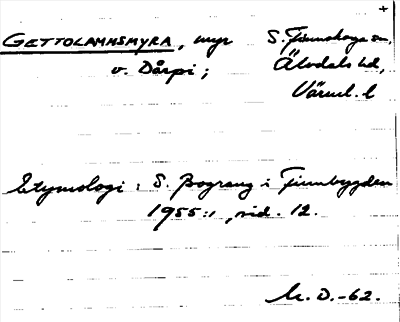 +
GETTOLAMMSMYRA, myr S. Finnskoga sn,
v. Dårpi; Älvdals hd,
Värml. l
Etymologi: S. Bograng i Finnbygden
1955:1, sid. 12.
M. D. -62.